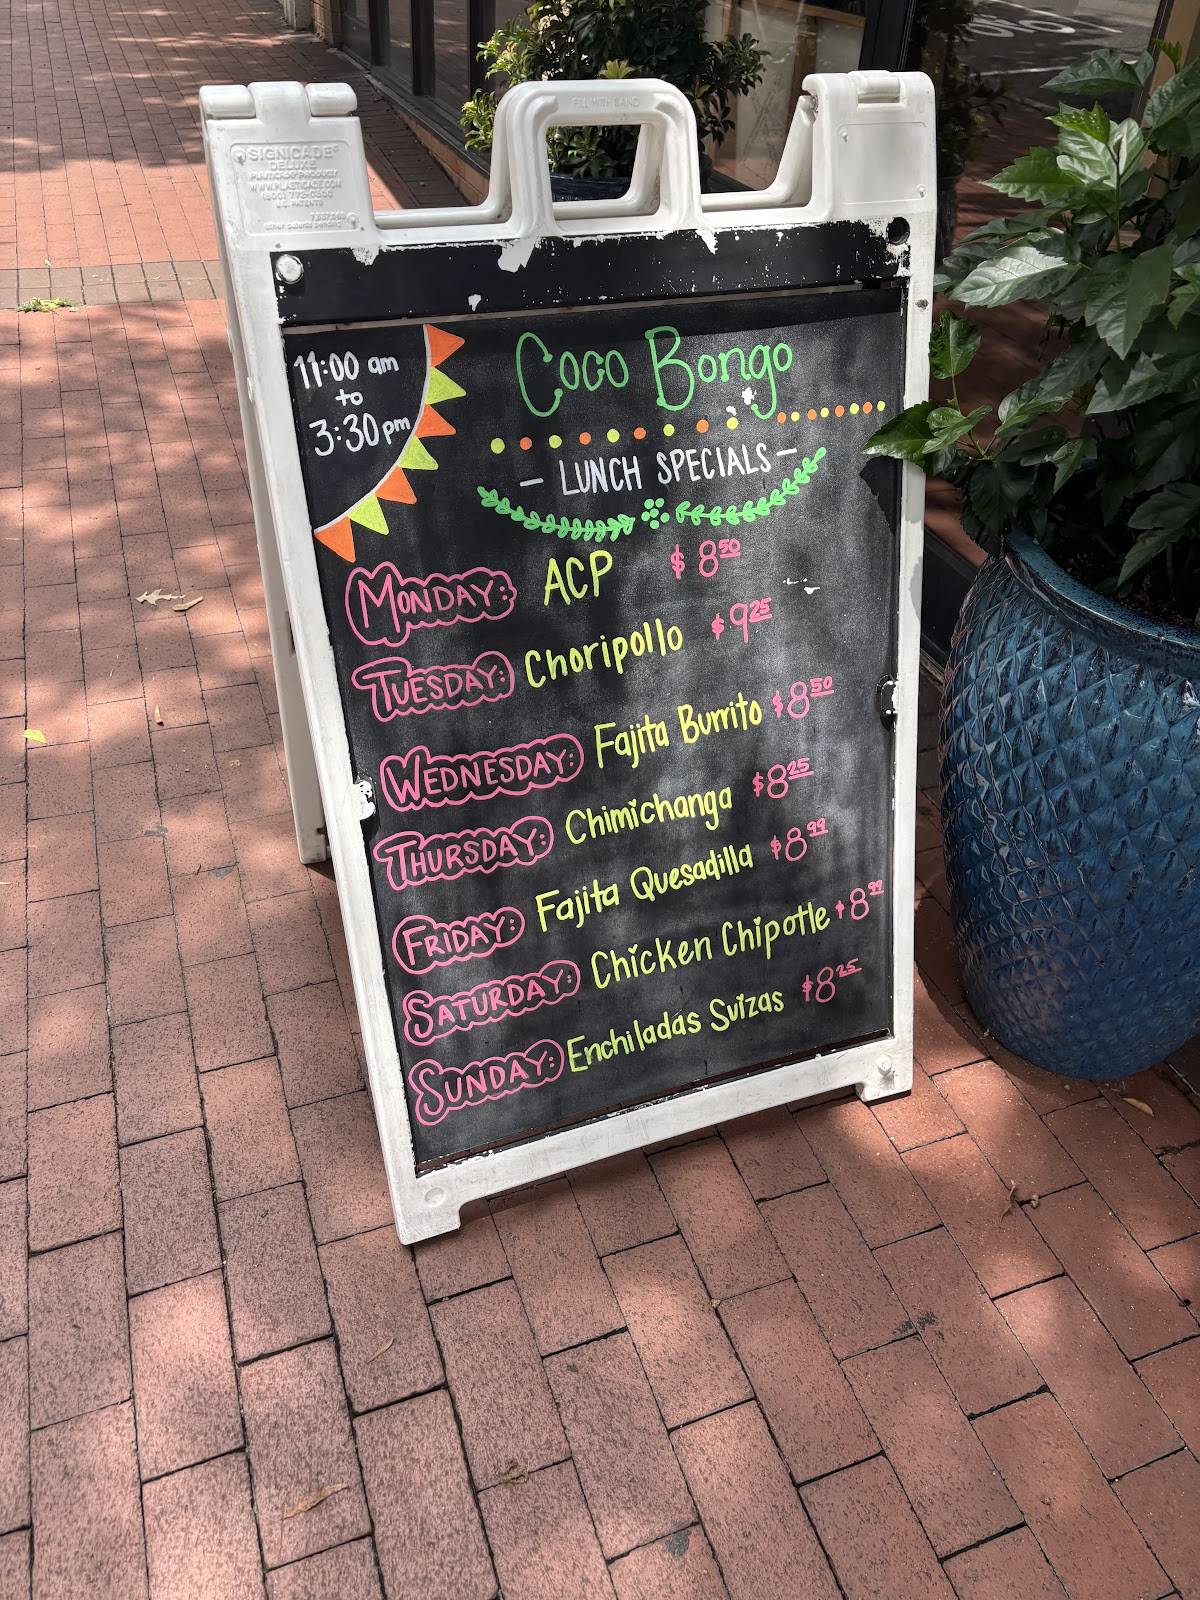 FILL WITH SAND
SIGNICADE®
DELUXE
PLASTICADE PRODUCT
WWW.PLASTICADE.COM
U.S. PATENTS
11:00 am
to
3:30pm
Coco Bongo
- LUNCH SPECIALS -
MONDAY: ACP $8 50
TUESDAY: Choripollo $9 25
WEDNESDAY: Fajita Burrito $8 50
THURSDAY: Chimichanga $8 25
FRIDAY: Fajita Quesadilla $8 99
SATURDAY: Chicken Chipotle $8 99
SUNDAY: Enchiladas Suizas $8 25